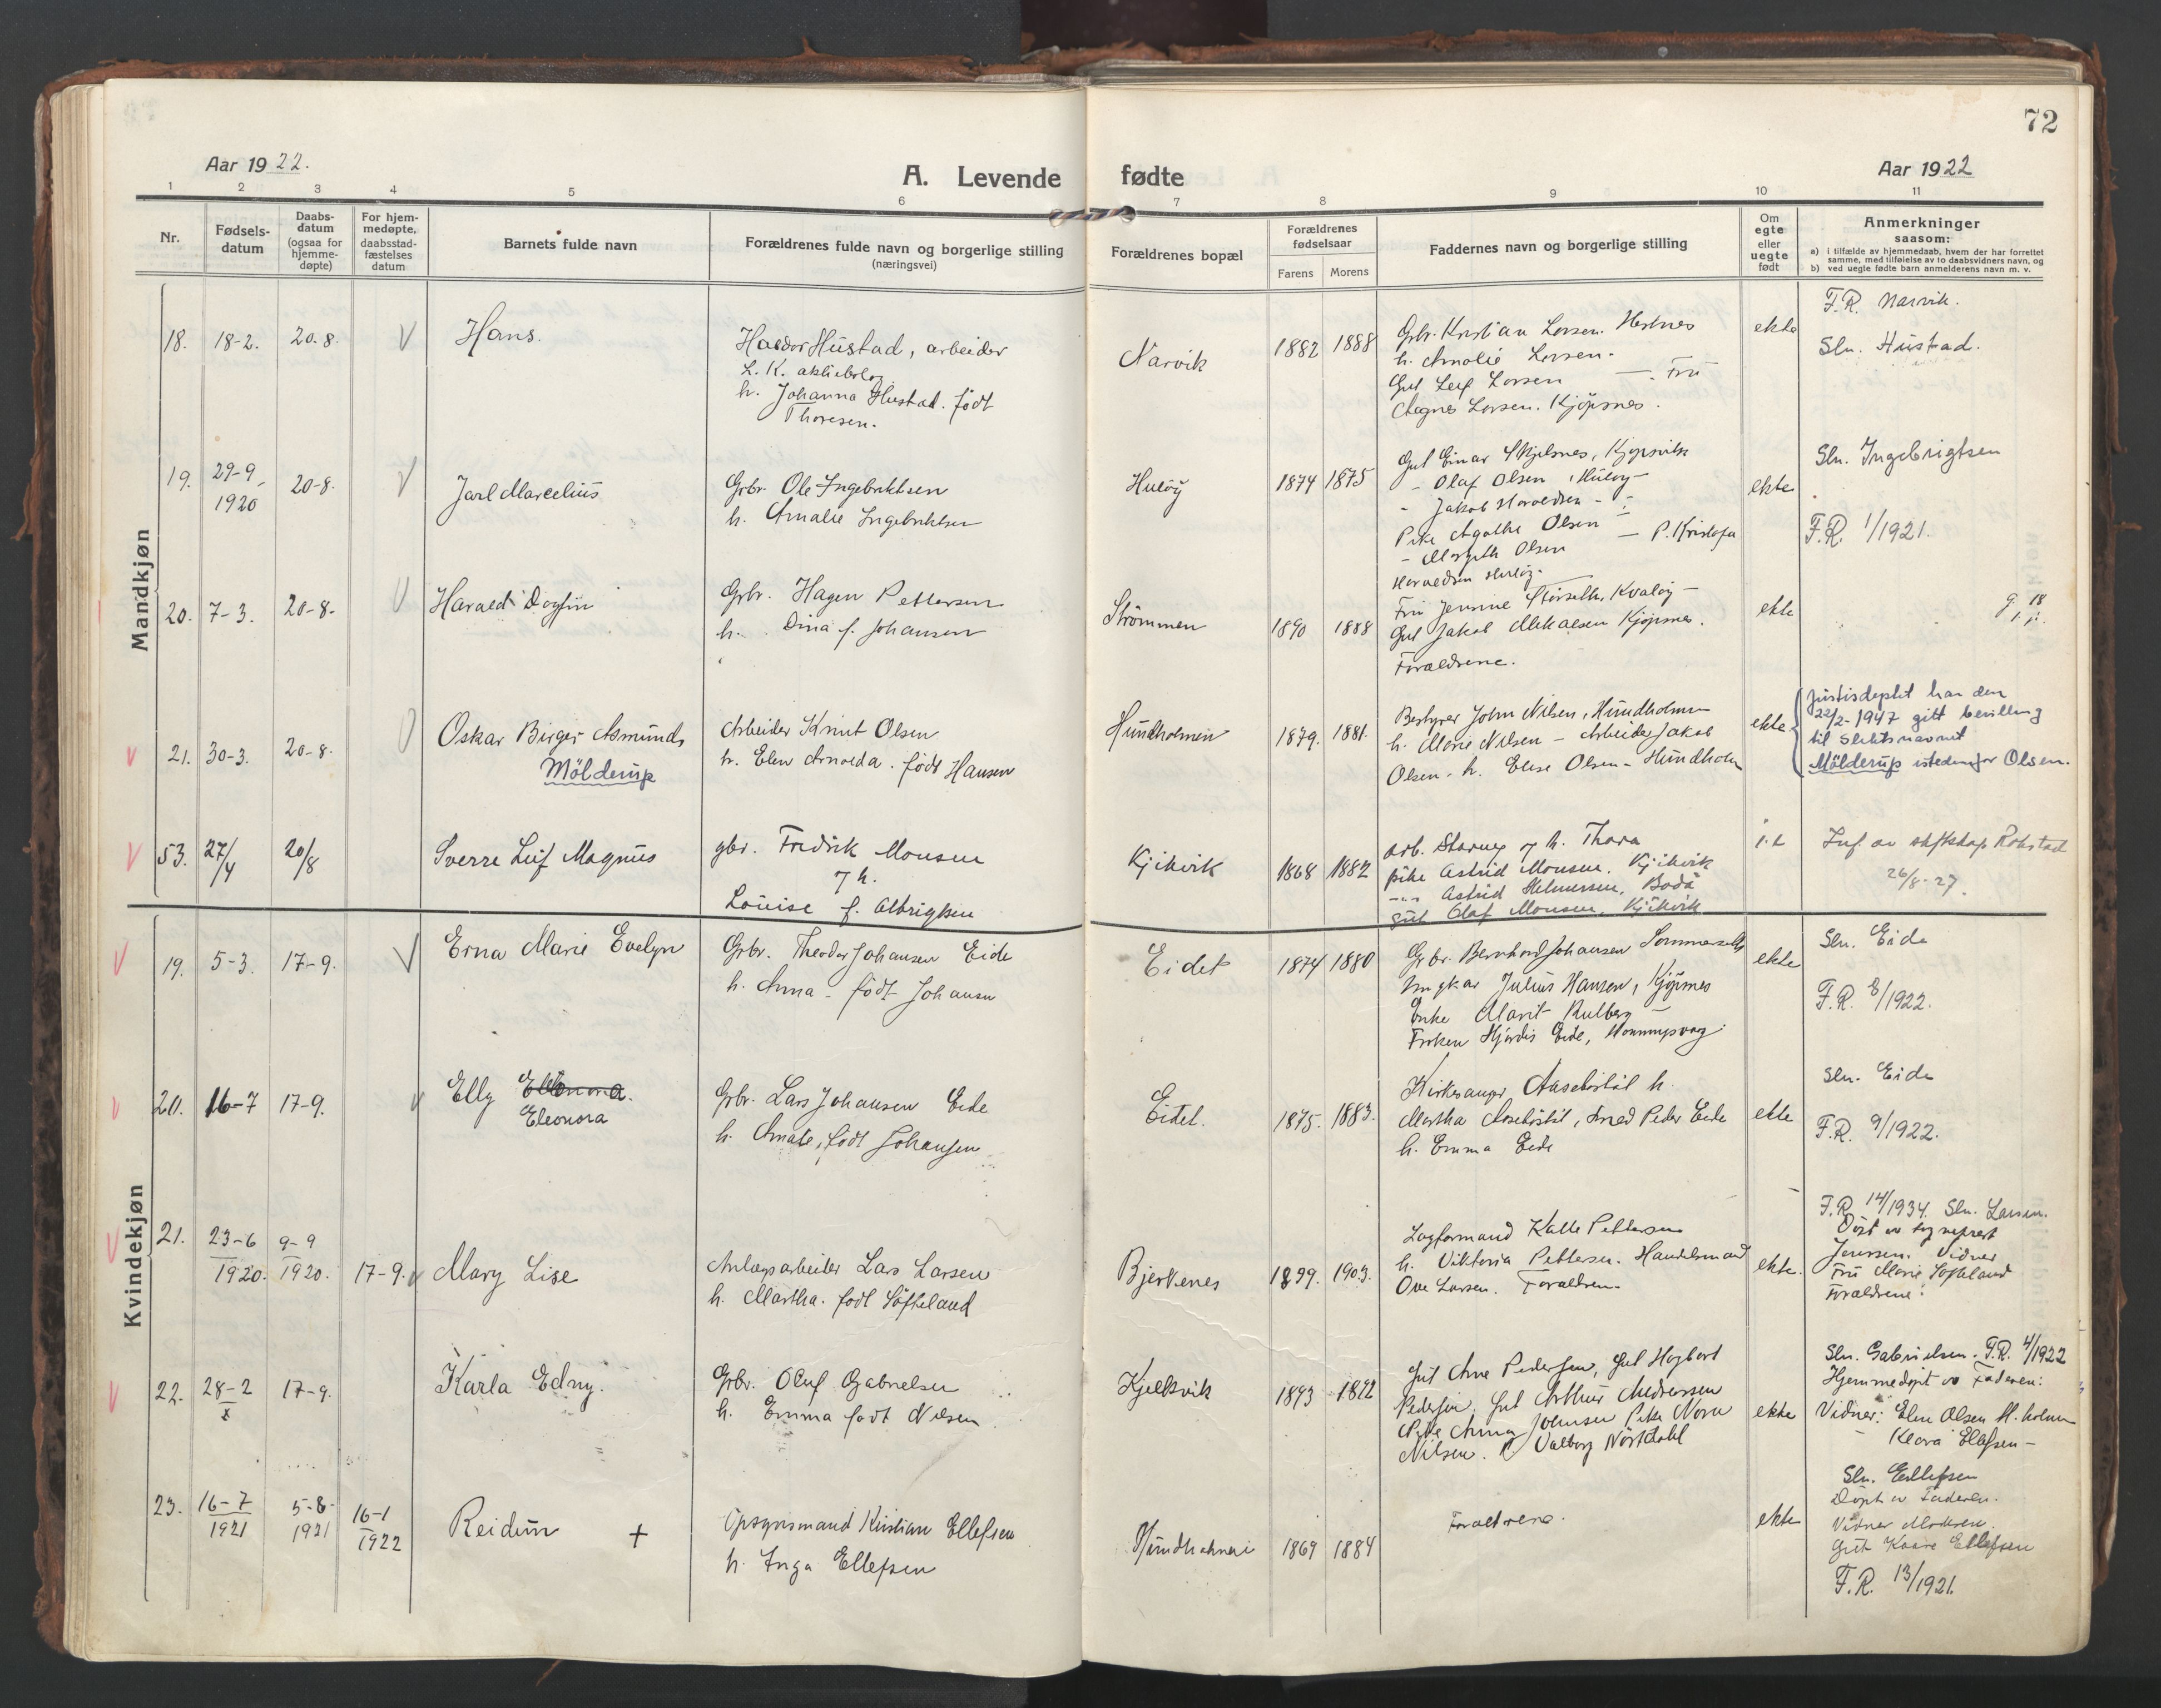 72
Aar 1922.
A. Levende fødte
Aar 1922
1 2 3 4 5 6 7 8 9 10 11
Nr.
Fødsels-
datum
Daabs-
datum
(ogsaa for
hjemme-
døpte)
For hjem-
medøpte,
daabsstad-
fæstelses
datum
Barnets fulde navn
Forældrenes fulde navn og borgerlige stilling
(næringsvei)
Forældrenes bopæl
Forældrenes
fødselsaar
Farens Morens
Faddernes navn og borgerlige stilling
Om
egte
eller
uegte
født
Anmerkninger
saasom:
a) i tilfælde av hjemmedaab, hvem der har forrettet
samme, med tilføielse av to daabsvidners navn, og
b) ved uegte fødte barn anmelderens navn m. v.
Mandkjøn
18. 18-2. 20.8. V Hans.
Haldor Hustad, arbeider
L. K. aktiebolag
h. Johanna Hustad. født
Thoresen.
Narvik 1882 1888
Grbr. Kristian Larsen. Hestnes
h. Amalie Larsen.
Gut Leif Larsen — . Fru
Agnes Larsen. Kjöpsnes.
ekte
F.R. Narvik.
Sln. Hustad.
19. 29-9 1920 20-8. V Jarl Marcelius
Grbr. Ole Ingebriktsen
h. Amalie Ingebriktsen
Hulöy 1874 1875
Gut Einar Skjelsnes, Kjöpsvik
- Olaf Olsen, Hulöy -
- Jakob Haraldsen - -
Pike Agathe Olsen — P. Kristofa
- Margith Olsen
Haraldsen Hulöy.
ekte
Sln. Ingebrigtsen
F.R. 1/1921.
20. 7-3. 20-8- V Harald Dagfin
Grbr. Hagen Pettersen
h. Dina f. Johansen
Strömmen 1890 1888
Fru Jensine Storseth, Kvalöy -
Gut Jakob Mikalsen Kjöpsnes.
Foraeldrene.
ekte
21. 30-3. 20-8. Oskar Birger Asmunds
Mölderup
Arbeider Knut Olsen
h. Elen Arnolda. født Hansen
Hundholmen 1879. 1881.
Bestyrer John Nilsen, Hundholmen
h. Marie Nilsen - Arbeider Jakob
Olsen - h. Elise Olsen - Hundholm
ekte
Justisdeptet har den
22/2-1947 gitt bevilling
til slektsnavnet
Mölderup istedenfor Olsen.
53. 27/4 20/8 Sverre Leif Magnus
gbr. Fredrik Monsen
og h.
Louise f. Albrigtsen
Kjikvik 1868 1882
arb. og h. Thora
pike Astrid Monsen. Kjikvik
-"- Astrid Helmersen, Bodö
gut Olaf Monsen, Kjikvik
Inf. av skifskap Rokstad
26/8-27.
Kvindekjøn
19. 5-3. 17-9. V Erna Marie Evelyn
Grbr. Theodor Johansen Eide
h. Anna - født Johansen
Eidet 1874 1880
Grbr. Bernhard Johansen Sommerseth
Ungkar Julius Hansen, Kjöpsnes
Enke Marit Rulberg -
Frøken Hjördis Eide, Honningsvag.
ekte
Sln. Eide
F.R. 8/1922.
20. 16-7 17-9. V Elly Ellenora.
Eleonora
Grbr. Lars Johansen Eide
h. Amalie, født Johansen
Eidet. 1875. 1883.
Kirkesanger Aaseböstöl h.
Martha Aaseböstöl, Smed Peder Eide
h. Emma Eide
ekte
Sln. Eide
F.R. 9/1922.
21. 23-6 1920. 9-9 1920. 17-9. V Mary Lise
Anlægsarbeider Lars Larsen
h. Martha. født Softeland
Bjerkenes 1899. 1903.
Lagformand Kalle Pettersen
h. Viktoria Pettersen. Handelsmand
Ove Larsen. Foraeldrene.
ekte.
F.R. 14/1934. Sln. Larsen.
Döpt av sogneprest
Jenssen. Vidner
Fru Marie Softeland
Foraeldrene.
22. 28-2 17-9. Karla Edny.
Grbr. Oluf Gabrielsen
h. Emma født Nilsen
Kjelkvik 1893 1892
Gut Arne Pedersen, Gut Hagbart
Pedersen. Gut Arthur Andreassen
Pike Anna Johnsen Pike Nora
Nilsen. P Valborg Nordahl
ekte
Sln. Gabrielsen. F.R. 4/1922
Hjemmedöpt av Faderen:
Vidner: Elen Olsen H.holmen
- Klara Ellefsen -
23. 16-7 1921 5-8- 1921 16-1 1922 Reidun +
Opsynsmand Kristian Ellefsen
h. Inga Ellefsen
Hundholmen 1869 1884
Foraeldrene.
ekte
Sln. Ellefsen
Döpt av Faderen.
Vidner Moderen.
Gut Kaare Ellefsen
F.R. 13/1921.